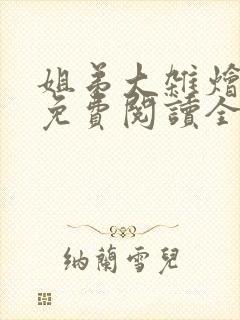 姐弟大雜燴
免費閱讀全
納蘭雪兒